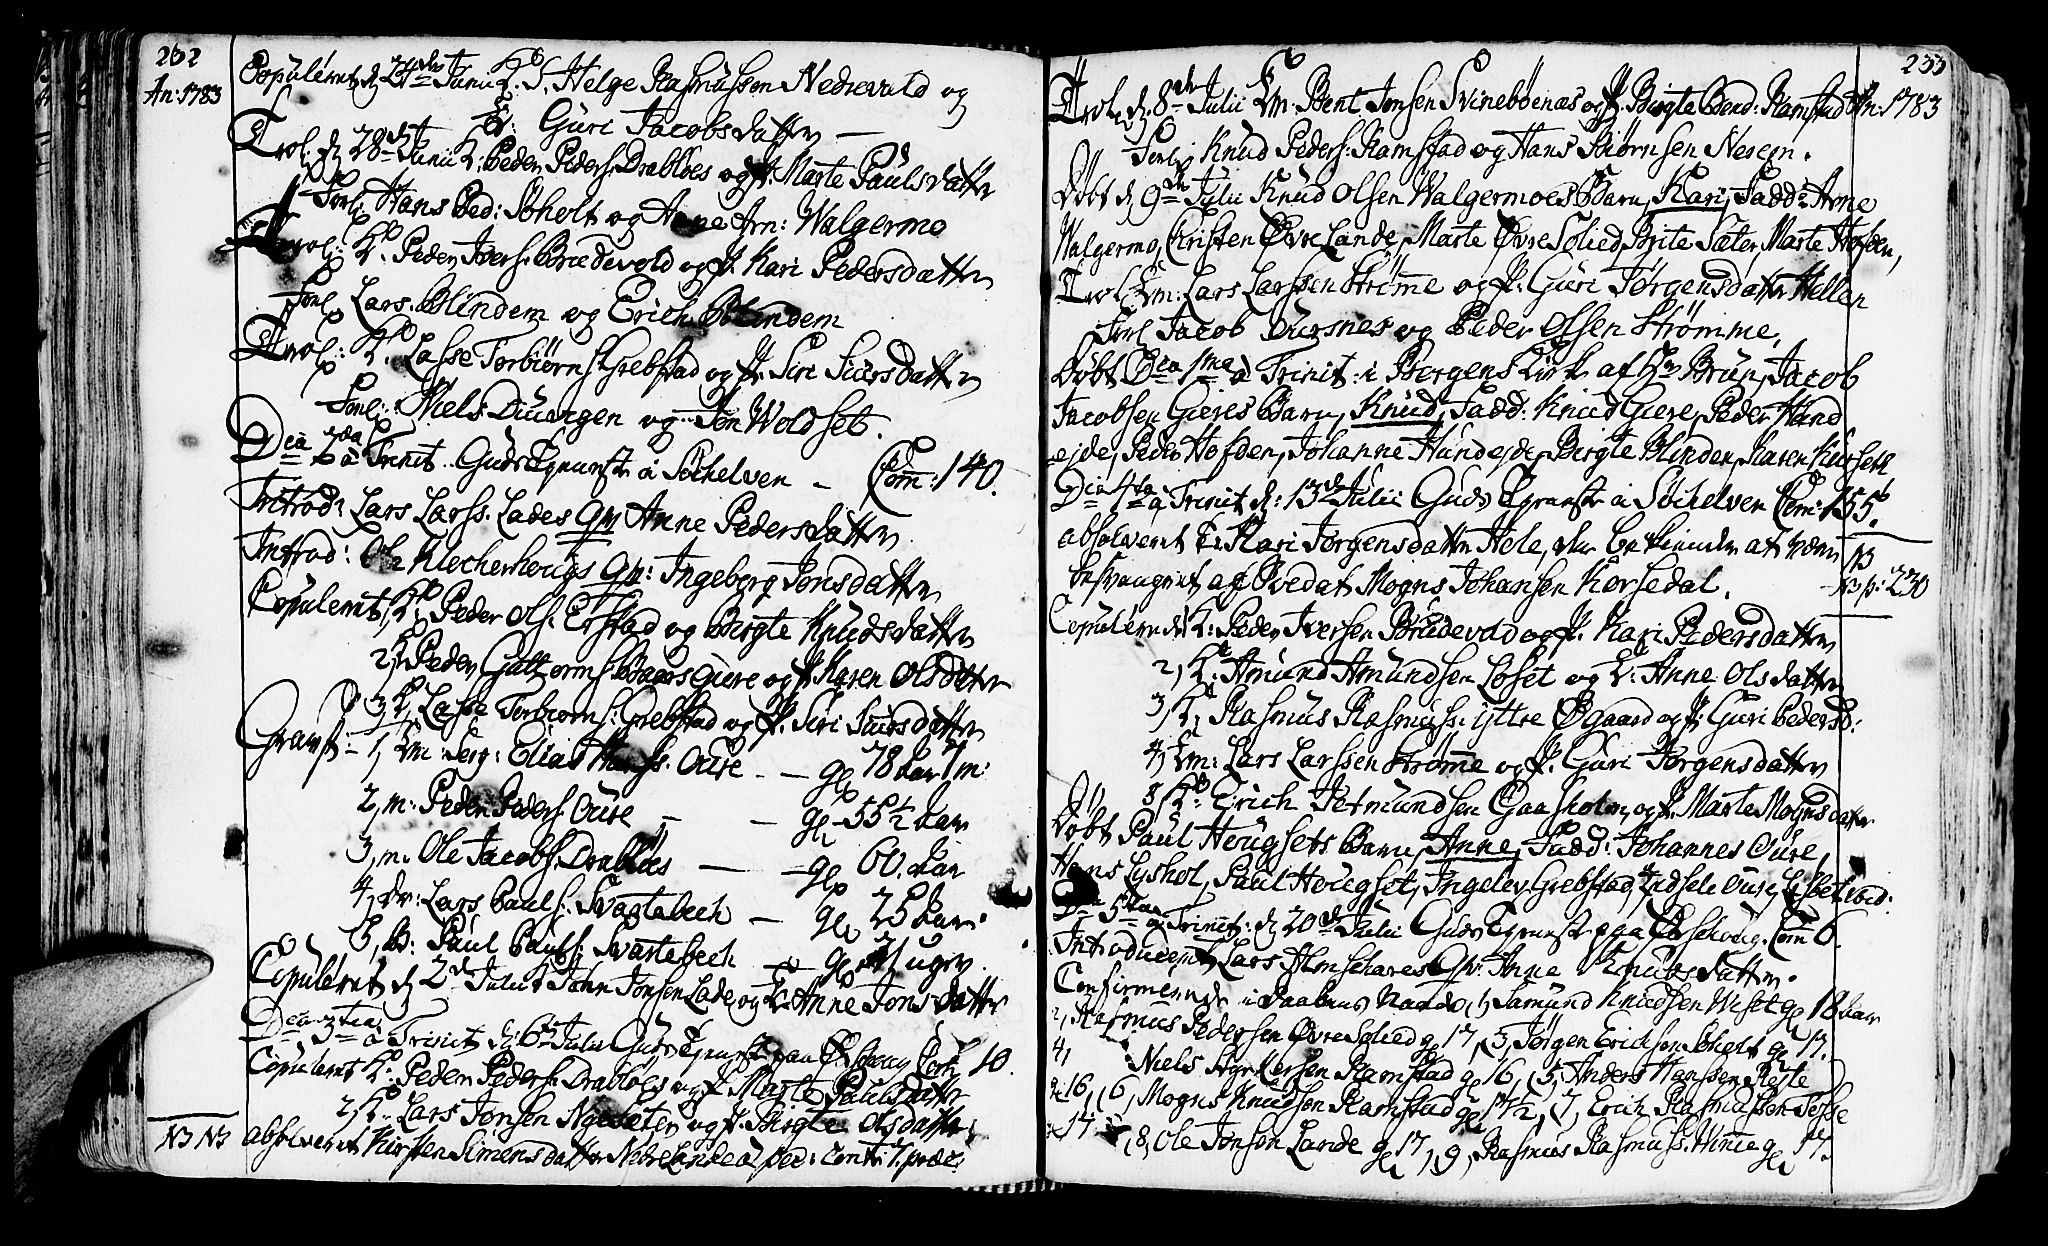 232
An: 1783
Copuleret d. 24de Junii K. S. Helge Rasmussøn Nedrevold og
Guri Jacobsdatter —
Trol. d. 28de Junii K. Peder Peders. Drabløes og P. Marte Paulsdatter
Forl. Hans Ped: Søholt og Arne Arn: Walgermo
Trol: K. Peder Ivers. Brudevold og P. Kari Pedersdatter
Forl. Lars Blindem og Erich Blindem
Trol: K. Lasse Torbiørns. Grebstad og P. Siri Siursdatter
Forl: Niels Duugen og Jon Woldset.
Dca 2da à Trinit. Guds Tieneste i Søchelven — Com: 140.
Introd: Lars Larss. Lades Qv: Anne Pedersdatter
Introd: Ole Klocherhougs Qv: Ingeberg Jonsdatter
Copuleret 1, K. Peder Ols. Erstad og Birgte Knudsdatter
2, K. Peder Guttorms. Giere og P. Karen Olsdatter
3, K. Lasse Torbiorns: Grebstad og P. Siri Siursdatter
Grafst: 1, Em: Serg: Elias Hanss. Oure — gl. 78 Aar 7 m:
2, m: Peder Peders. Oure — — gl. 55½ Aar
3, m. Ole Jacobs. Drabløes — — gl. 60. Aar
4, Lars Pauls. Svartebech — gl. 25 Aar.
5, B: Paul Pauls. Svartebech gl. uger.
Copuleret d. 2de Julii K. John Jonsen Lade og E. Anne Jonsdatter
Dca 3tia à Trinit. d. 6te Julii Guds Tieneste paa Ørschoug Com 10.
Copuleret K. Peder Peders. Drabloes og P. Marte Paulsdatter
2, K. Lars Jonsen og P. Birgte Olsdatter
NB NB absolveret Kirsten Simensdatter Nedrelande

233
An: 1783
Trol. d. 8de Julii Em: Bent Jonsen Svinebøenæs og P. Birgte Bend: Ramstad
Forl. Knud Peders: Ramstad og Hans Biørnsen Neregn.
Døbt d. 9de Julii Knud Olsen Walgermoes Barn, Kari, Fadd: Arne
Walgermo, Christen Øvrelande, Marte Øvre Solied, Brite Sæter, Marte Hofden,
Trol. Em: Lars Larssen Strømme og P. Guri Jørgensdatter Hellen
Forl. Jacob og Peder Olsen Strømme,
Døbt Dca 1ma à Trinit: i Borgens Kirke af Hr. Brun, Jacob
Jacobsen Gieres Barn, Knud, Fadd: Knud Giere, Peder Hund
ejde, Peder Hofden, Johanne Hundejde, Birgte Blinden, Karen Kurseth
Dca 4ta à Trinit d: 13de Julii Guds Tieneste i Søchelven Com: 155.
absolveret E. Kari Jørgensdatter Hole, der bekiender at være
besvangret af Soldat Mogns Johansen Korsedal.
NB
230
Copulerede 1, K. Peder Iversen Brudevold og P. Kari Pedersdatter
2, K. Amund Amundsen Løset og E. Anne Olsdatter
3, K. Rasmus Rasmuss. yttre Øgaard og P. Guri Pedersd:
4, Em: Lars Larssen Strømme og P. Guri Jørgensdatter
5, K. Erich Jetmundsen Gaasholm og P. Marte Mognsdatter
Døbt Paul Hougsets Barn, Anne, Fadd: Johannes Oure,
Hans Lyshol, Paul Hougset, Ingelev Grebstad, Oure, Lisbet
Dca 5ta à Trinit: d. 20de Julii Guds Tieneste paa Ørschoug. Com 6.
Introduceret Lars Qv. Anne Knudsdatter.
Confirmerede 1, Samund Knudsen Weset gl. 18 Aar
2, Rasmus Pedersen Øvre Solied gl. 17, 3, Jørgen Erichsen Søholt gl. 17.
4, Niels Ramstad gl. 16, 5, Anders Hanssen Røste
gl. 16, 6, Mogns Knudsen Ramstad gl. 17½, 7, Erich Rasmussen Tosse
gl. 17, 8, Ole Jonsen Lande gl. 17, 9, Rasmus Rasmuss. gl. 17.